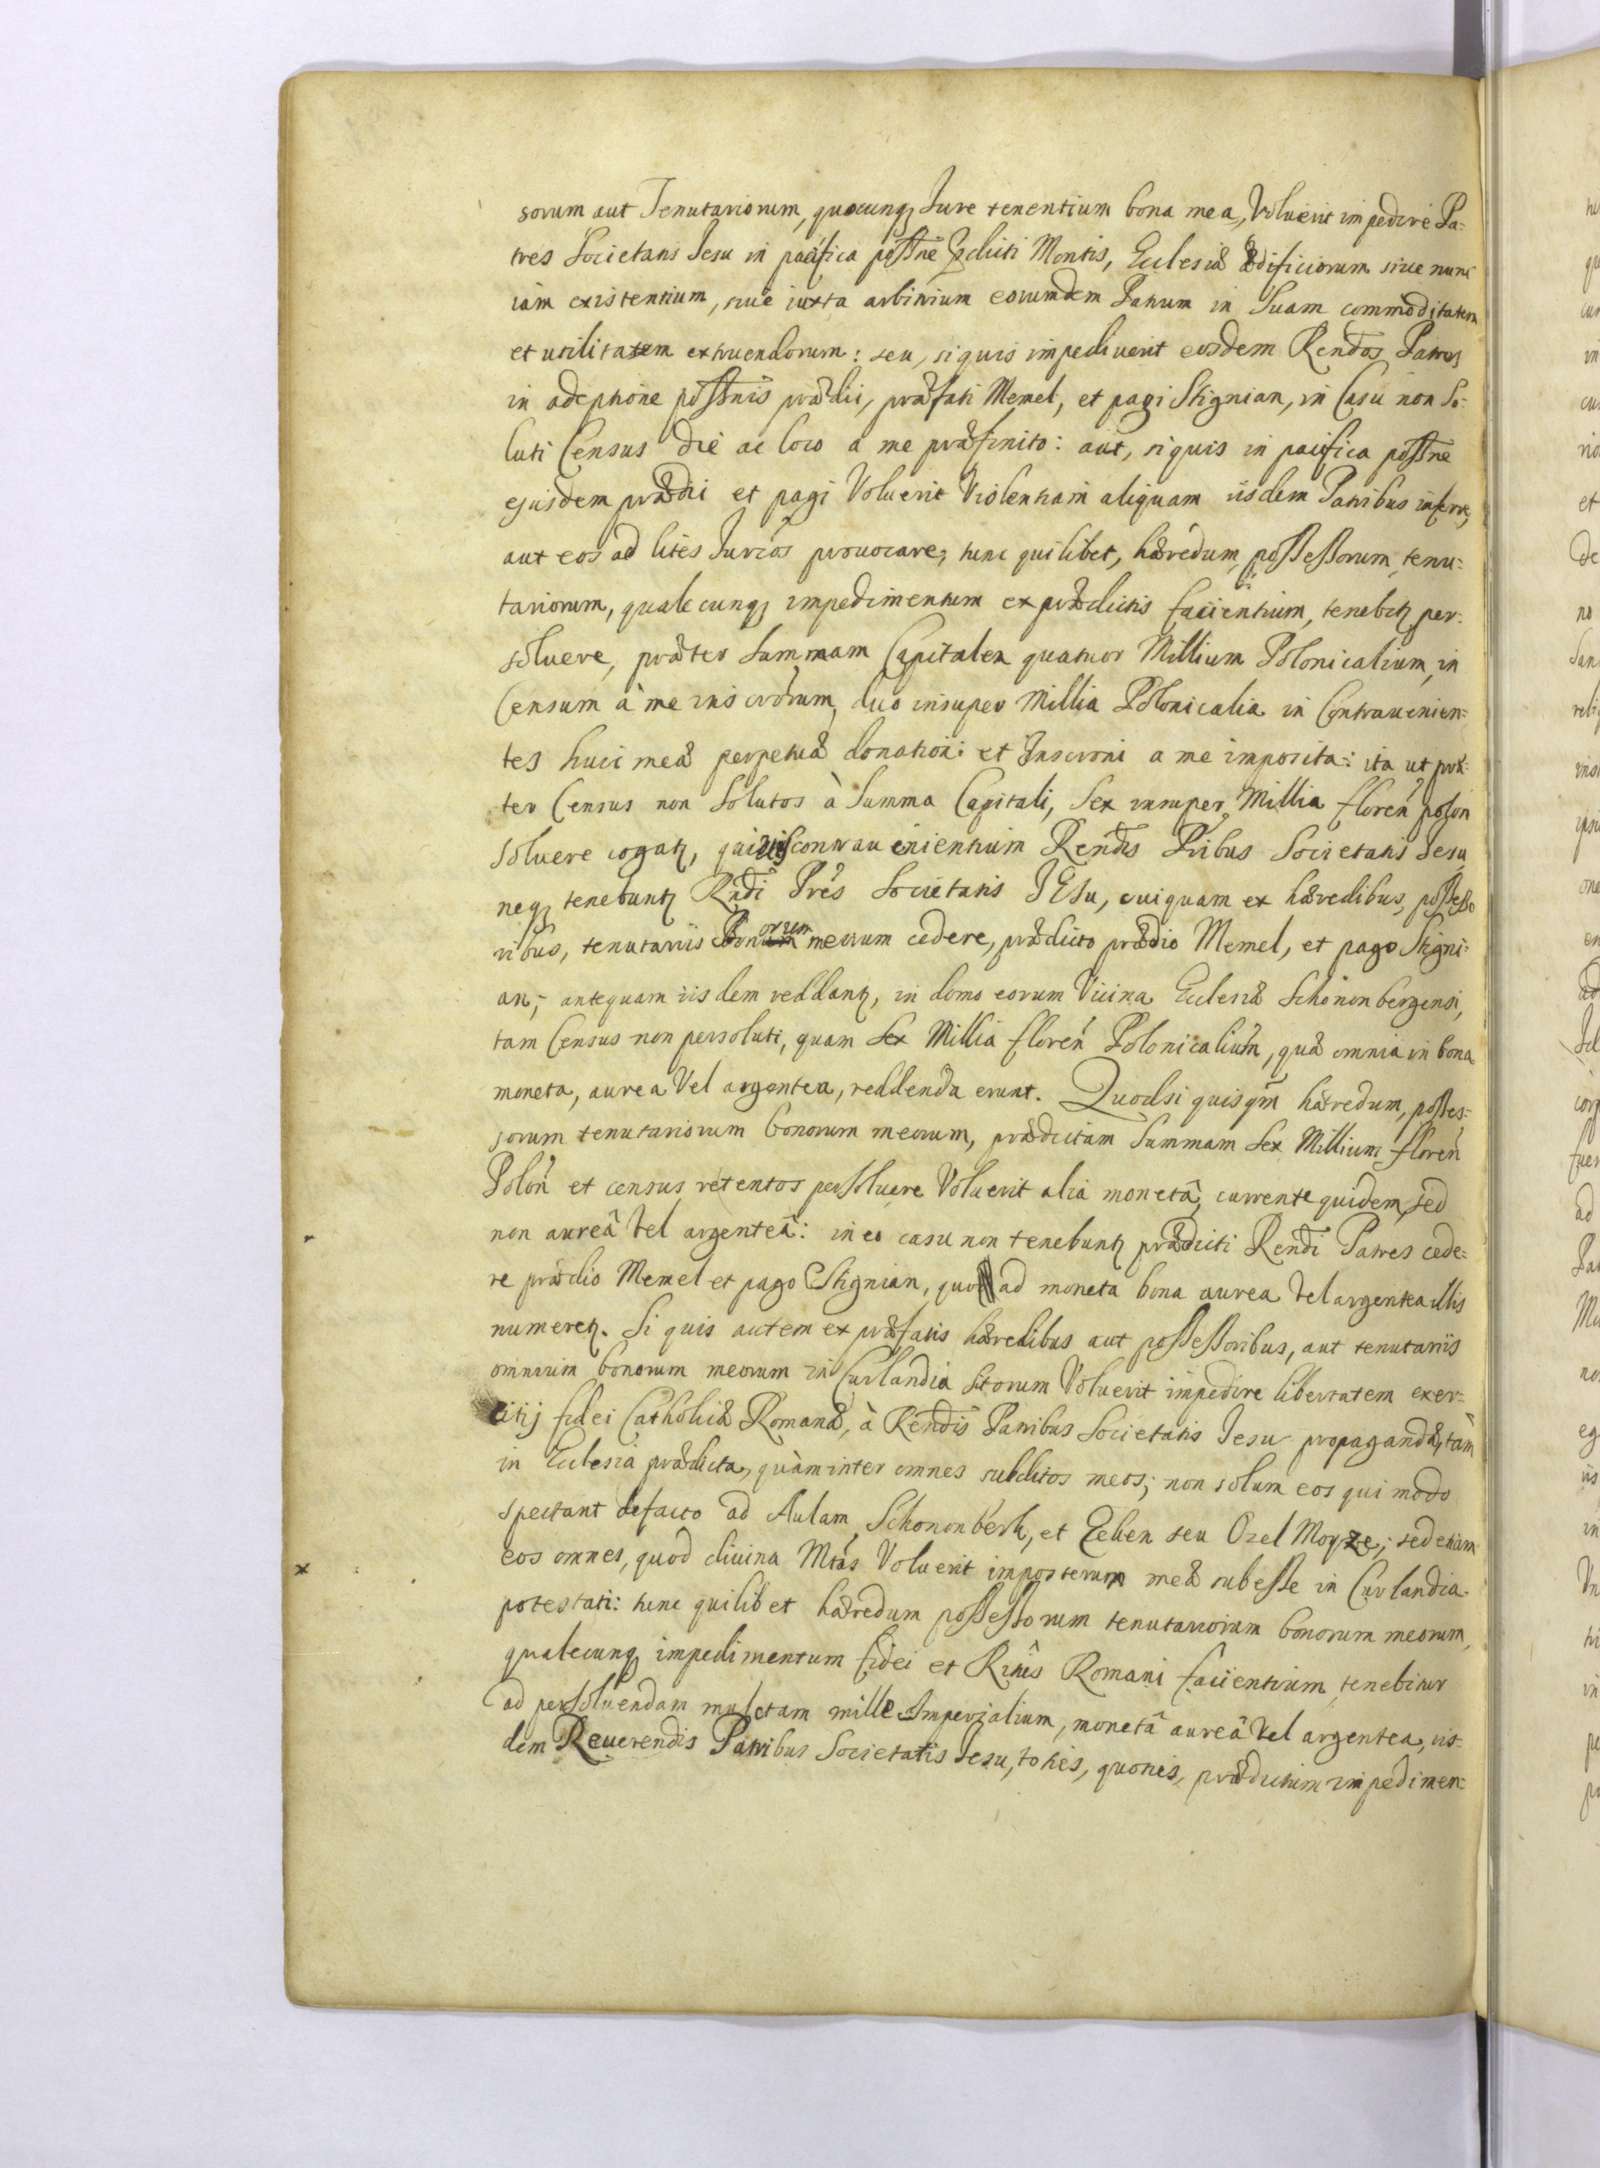 sorum aut Tenutariorum, quocunq; Iure tenentium bona mea, Voluerit impedire Pa:
tres Societatis Iesu in pacifica possne pdicti Montis, Ecclesiæ ædificiorum siue nunc
iàm existentium, siue iuxta arbitrium eorumdem Patrum in Suam commoditatem
et utilitatem extruendorum: seu, siquis impediuerit eosdem Rendos Patres
in adeptione possnis prædii, præfati Memel, et pagi Stignian, in Casu non So:
luti Census die ac loco a me præfinito: aut, siquis in pacifica possne
ejusdem prædii et pagi Voluerit Violentiam aliquam iisdem Patribus inferre,
aut eos ad lites Iurcos prouocare; tunc quilibet, hæredum, possessorum, tenu:
tariorum, qualecunq; impedimentum ex prædictis facientium, tenebit per:
soluere, præter Summam Capitalem quatuor Millium Polonicalium, in
Censum à me inscrorum, duo insuper Millia Polonicalia in Contrauenien:
tes huic meæ perpetuæ donationi et Inscroni a me imposita: ita ut præ:
ter Census non Solutos à Summa Capitali, Sex insuper Millia floren polon
Soluere cogat, quiuis contrauenientium Rendis Pribus Societatis Iesu
neq; tenebunt Rndi Pres Societatis IESu, cuiquam ex hæredibus, possesso
ribus, tenutariis Bonorum meorum cedere, prædicto prædio Memel, et pago Stigni:
an; antequam iisdem reddant, in domo eorum Vicina Ecclesiæ Schononbergensi,
tam Census non persoluti, quam Sex Millia floren Polonicalium, quæ omnia in bona
moneta, aurea Vel argentea, reddenda erunt. Quodsi quisqm hæredum, posses:
sorum tenutariorum bonorum meorum, prædictam Summam Sex Millium floren
Polon et census retentos persoluere Voluerit alia monetâ, currente quidem, sed
non aureâ Vel argenteâ: in eo casu non tenebunt prædicti Rendi Patres cede:
re prædio Memel et pago Stignian, quo ad moneta bona aurea Vel argentea illis
numeret. Si quis autem ex præfatis hæredibus aut possessoribus, aut tenutariis
omnium bonorum meorum in Curlandia sitorum Voluerit impedire libertatem exer:
citij fidei Catholicæ Romanæ, à Rendis Patribus Societatis Iesu propagandæ, tàm
in Ecclesia prædicta, quàm inter omnes subditos meos; non solum eos qui modo
spectant defacto ad Aulam Schononberk, et Ecken seu Ozel Moyze; sed etiam
eos omnes, quod diuina Mtas Voluerit imposterum meæ subesse in Curlandia
potestati: tunc quilibet hæredum possessorum tenutariorum bonorum meorum,
qualecunq; impedimentum fidei et Ritûs Romani facientium, tenebitur
ad persoluendam mulctam mille Imperialium, monetâ aureâ Vel argentea, iis:
dem Reuerendis Patribus Societatis Iesu, toties, quoties, prædictum impedimen: